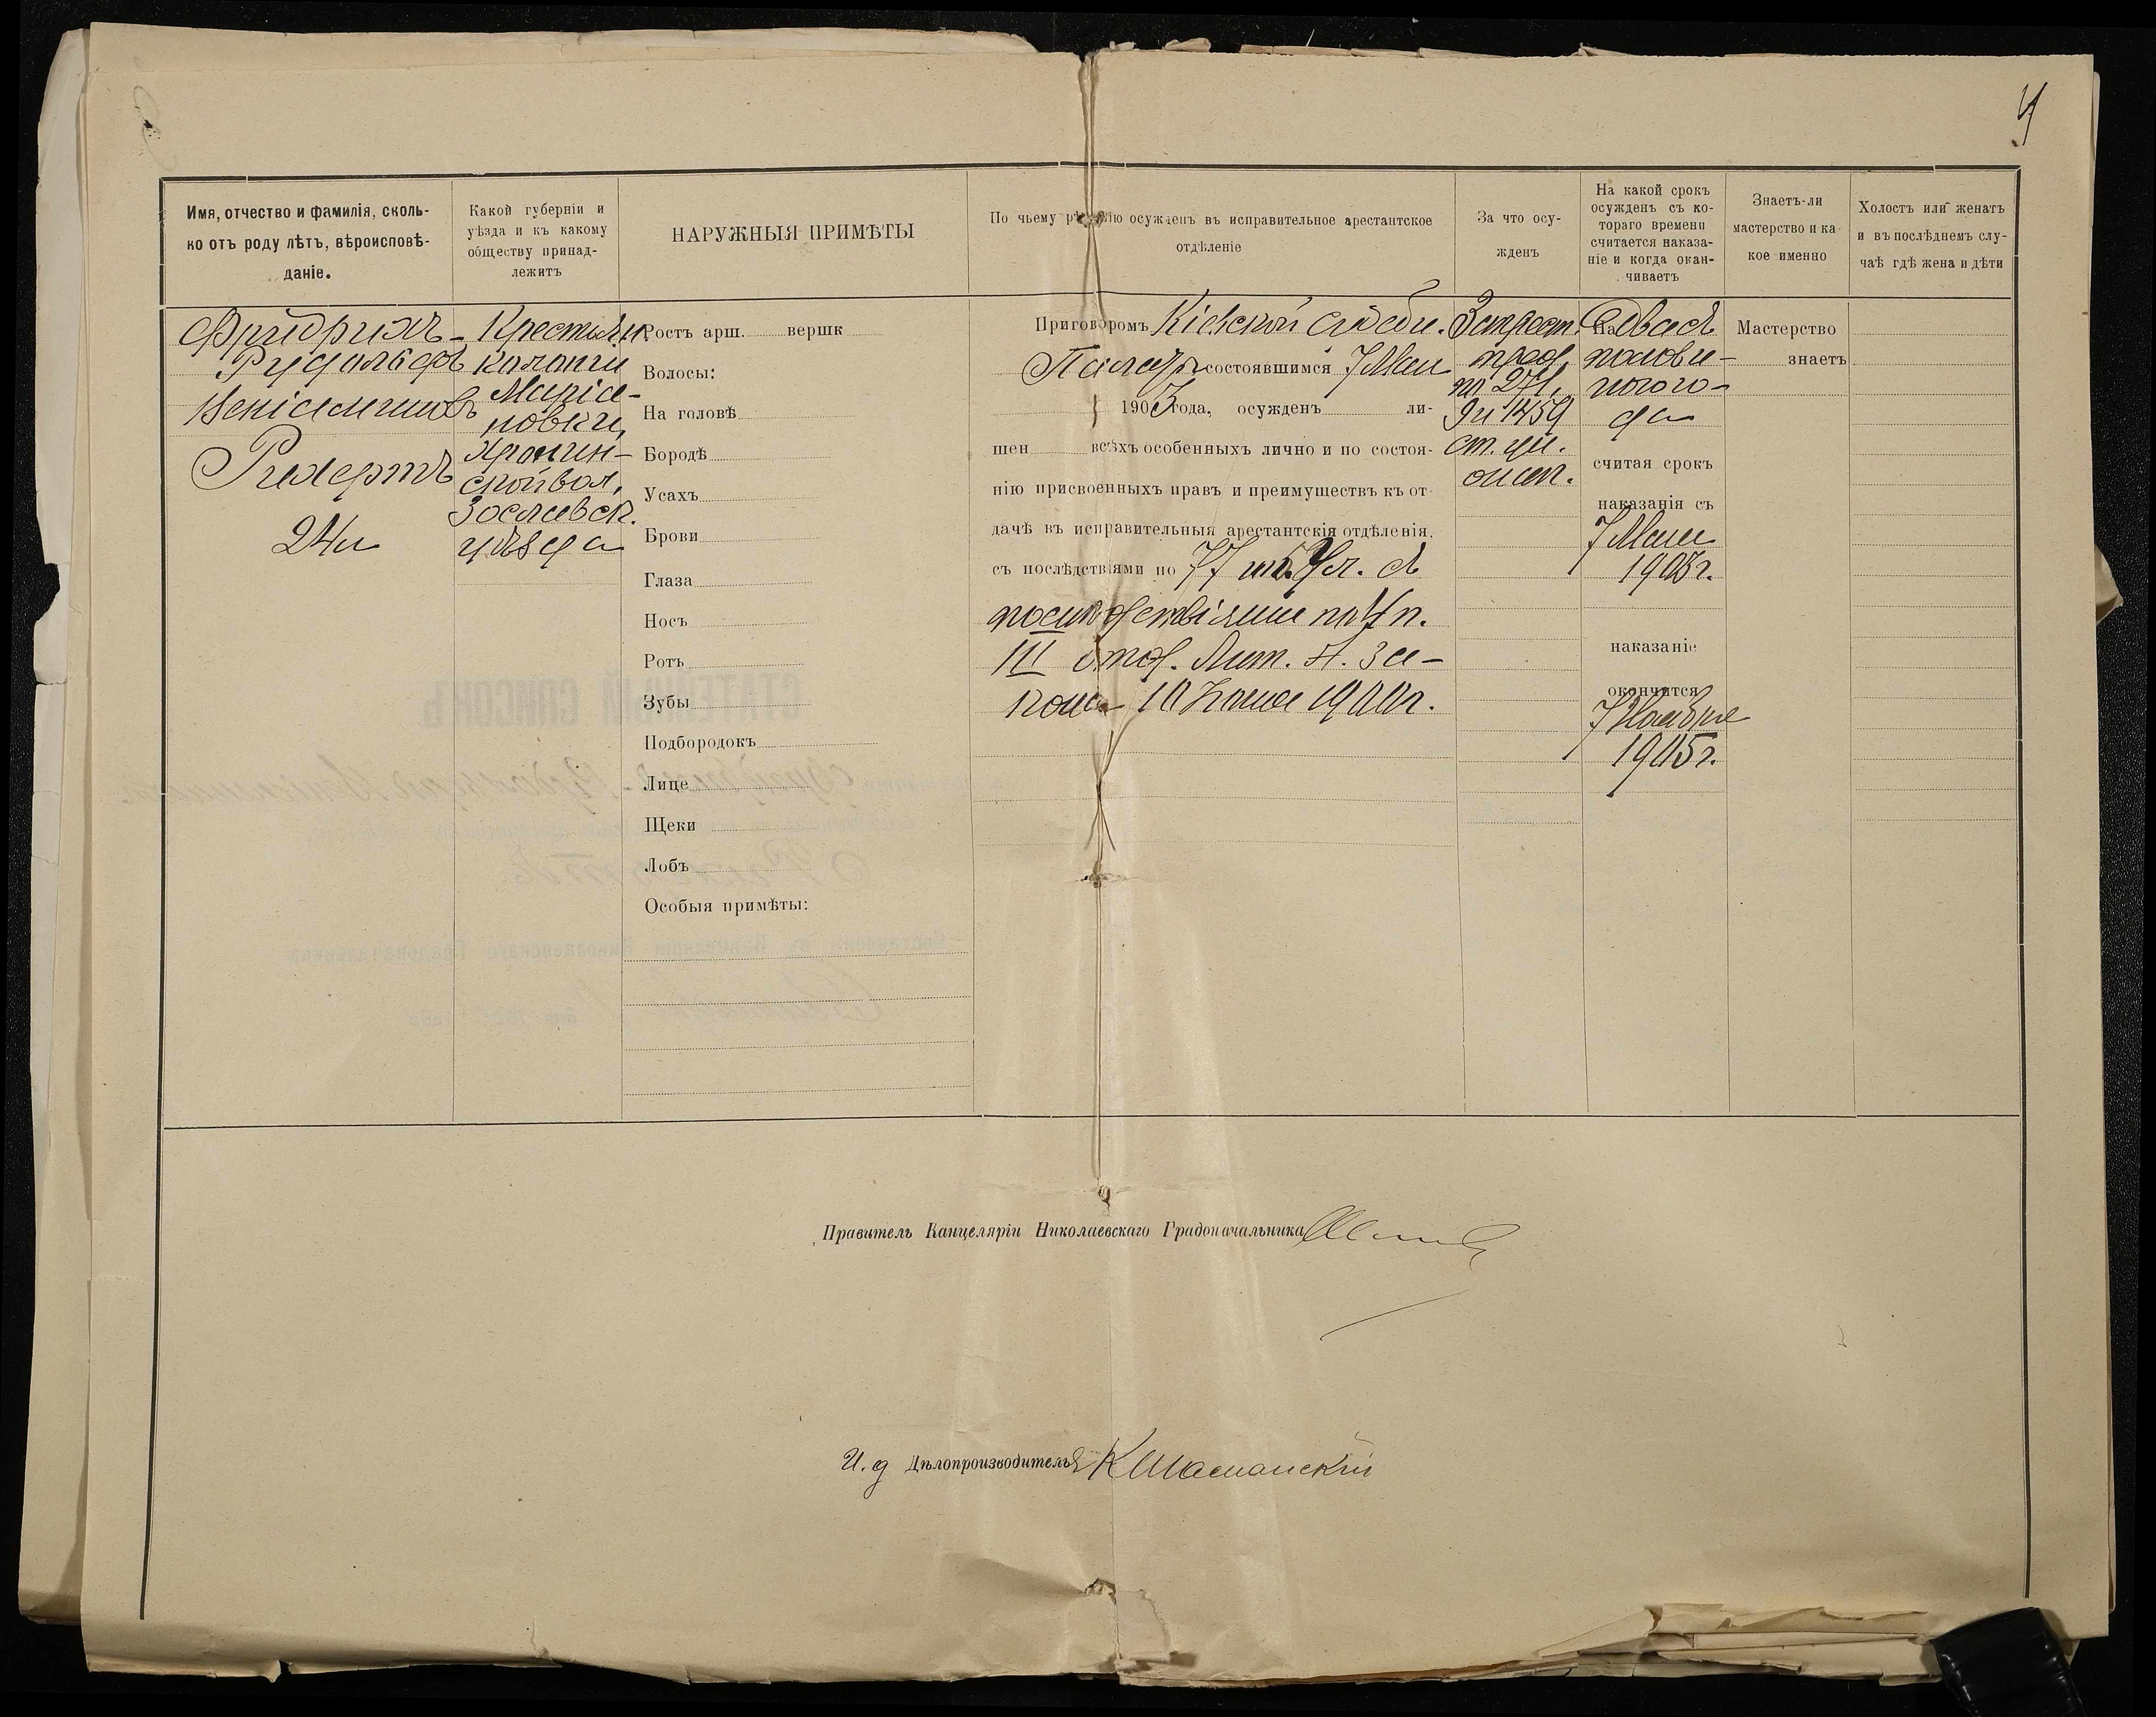 4
Имя, отчество и фамилія, сколь-
ко отъ роду лѣтъ, вѣроисповѣ-
даніе.
Какой губерніи и
уѣзда и къ какому
обществу принад-
лежитъ
НАРУЖНЫЯ ПРИМѢТЫ
По чьему рѣшенію осужденъ въ исправительное арестантское
отдѣленіе
За что осу-
жденъ
На какой срокъ
осужденъ съ ко-
тораго времени
считается наказа-
ніе и когда окан-
чиваетъ
Знаетъ-ли
мастерство и ка-
кое именно
Холостъ или женатъ
и въ послѣднемъ слу-
чаѣ гдѣ жена и дѣти
Фридрихъ-
Рудольфъ
Веніаминовъ
Рихертъ
24 л
Крестьян.
колоніи
Маріа-
новки,
Хролин-
ской вол.
Заславск.
уѣзда
Ростъ арш. вершк
Волосы:
На головѣ
Бородѣ
Усахъ
Брови
Глаза
Носъ
Ротъ
Зубы
Подбородокъ
Лице
Щеки
Лобъ
Особыя примѣты:
Приговоромъ Кіевской Судебн.
Палаты состоявшимся 7 Мая
1903 года, осужденъ ли-
шен всѣхъ особенныхъ лично и по состоя-
нію присвоенныхъ правъ и преимуществъ къ от-
дачѣ въ исправительныя арестантскія отдѣленія,
съ послѣдствіями по 77 ст. Ул. съ
послѣдствіями по 4 п.
III отд. Лит. А. За-
кона 10 Іюня 1900 г.
За прест.
пред.
по 271,
9 и 1459
ст. ул.
о нак.
На Два съ
полови-
ною го-
да
считая срокъ
наказанія съ
7 Мая
1903 г.
наказаніе
окончится
7 Ноября
1905 г.
Мастерство
знаетъ
Правитель Канцеляріи Николаевскаго Градоначальника
И. д Дѣлопроизводителя